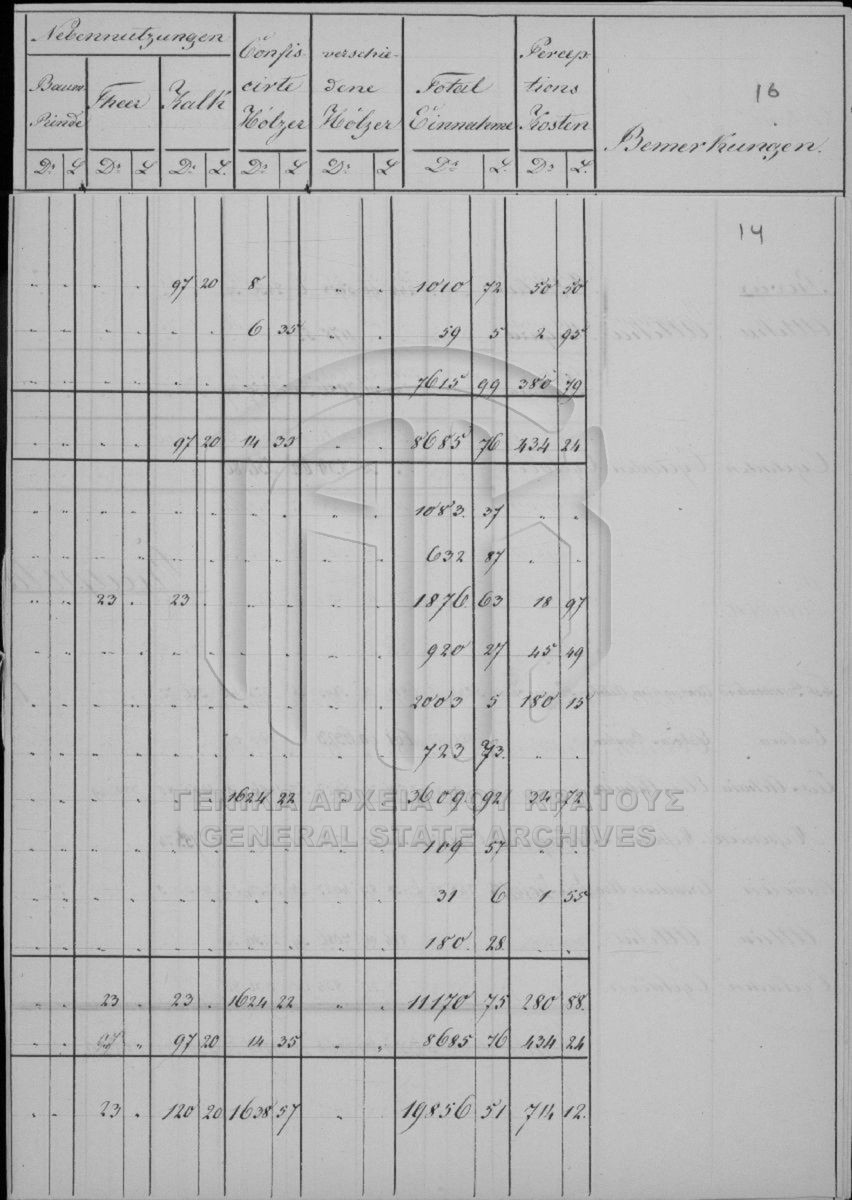 Nebennutzungen Confis- verschie- Percep-
Baum- Theer Kalk cirte dene Total tions 16
Rinde Hölzer Hölzer Einnahme Kosten Bemerkungen.
Ds L Ds L Ds L. Ds L Ds L Ds L. Ds L.
14
" " " " 97 20 8 " " 1010 72 50 50
" " " " " " 6 35 " " 59 5 2 95
" " " " " " " " " " 7615 99 380 79
" " " " 97 20 14 35 " " 8685 76 434 24
" " " " " " " " " " 1083 37 " "
" " " " " " " " " " 632 87 " "
" " 23 " 23 " " " " " 1876 63 18 97
" " " " " " " " " " 920 27 45 49
" " " " " " " " " " 2003 5 180 15
" " " " " " " " " " 723 73 " "
" " " " " " 1624 22 " " 3609 92 34 72
" " " " " " " " " " 109 57 " "
" " " " " " " " " " 31 6 1 55
" " " " " " " " " " 180 28 " "
ΓΕΝΙΚΑ ΑΡΧΕΙΑ ΤΟΥ ΚΡΑΤΟΥΣ
GENERAL STATE ARCHIVES
" " 23 " 23 " 1624 22 " " 11170 75 280 88.
" " " 97 20 14 35 " " 8685 76 434 24
" " 23 " 120 20 1638 57 " 19856 51 714 12.